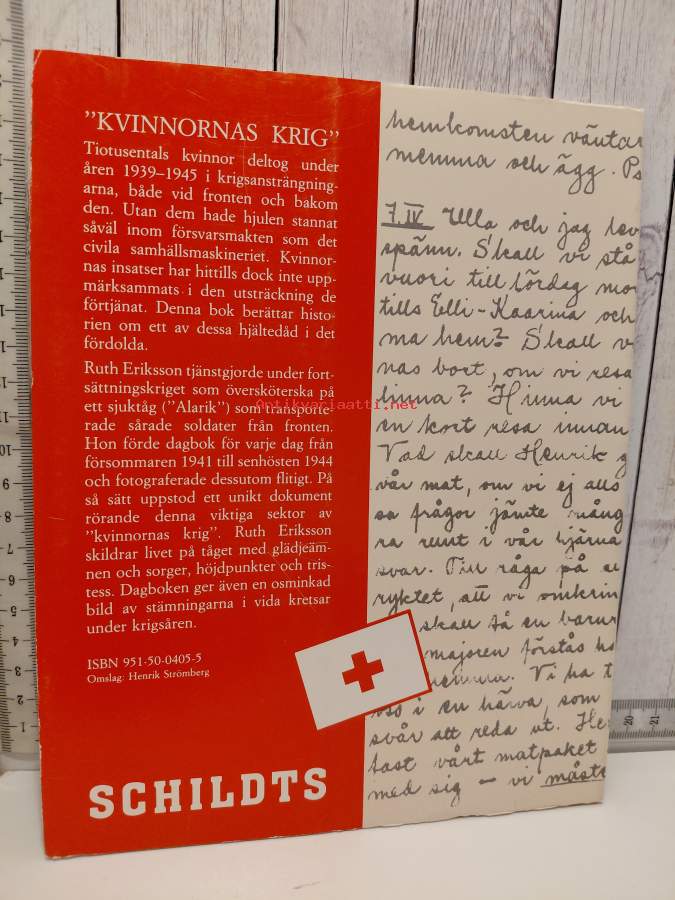 "KVINNORNAS KRIG"
Tiotusentals kvinnor deltog under
åren 1939–1945 i krigsansträngning-
arna, både vid fronten och bakom
den. Utan dem hade hjulen stannat
såväl inom försvarsmakten som det
civila samhällsmaskineriet. Kvinnor-
nas insatser har hittills dock inte upp-
märksammats i den utsträckning de
förtjänat. Denna bok berättar histo-
rien om ett av dessa hjältedåd i det
fördolda.
Ruth Eriksson tjänstgjorde under fort-
sättningskriget som översköterska på
ett sjuktåg ("Alarik") som transporte-
rade sårade soldater från fronten.
Hon förde dagbok för varje dag från
försommaren 1941 till senhösten 1944
och fotograferade dessutom flitigt. På
så sätt uppstod ett unikt dokument
rörande denna viktiga sektor av
"kvinnornas krig". Ruth Eriksson
skildrar livet på tåget med glädjeäm-
nen och sorger, höjdpunkter och tris-
tess. Dagboken ger även en osminkad
bild av stämningarna i vida kretsar
under krigsåren.
ISBN 951-50-0405-5
Omslag: Henrik Strömberg
SCHILDTS
hemkomsten väntar
memma och ägg. Ps
7.IV Ulla och jag lev
spänn. Skall vi stå
vuori till lördag mor
tills Elli-Kaarina och
ma hem? Skall v
nas bort, om vi resa
linna? Hinna vi
en kort resa innan
Vad skall Henrik g
vår mat, om vi ej alls
sa frågor jämte mång
ra runt i vår hjärna
svar. Till råga på
ryktet, att vi omkrin
skall få en barur
majoren förstås
memma. Vi ha t
oss i en härva, som
svår att reda ut. He
fast vårt matpaket
med sig – vi måste
antikvariaatti.net